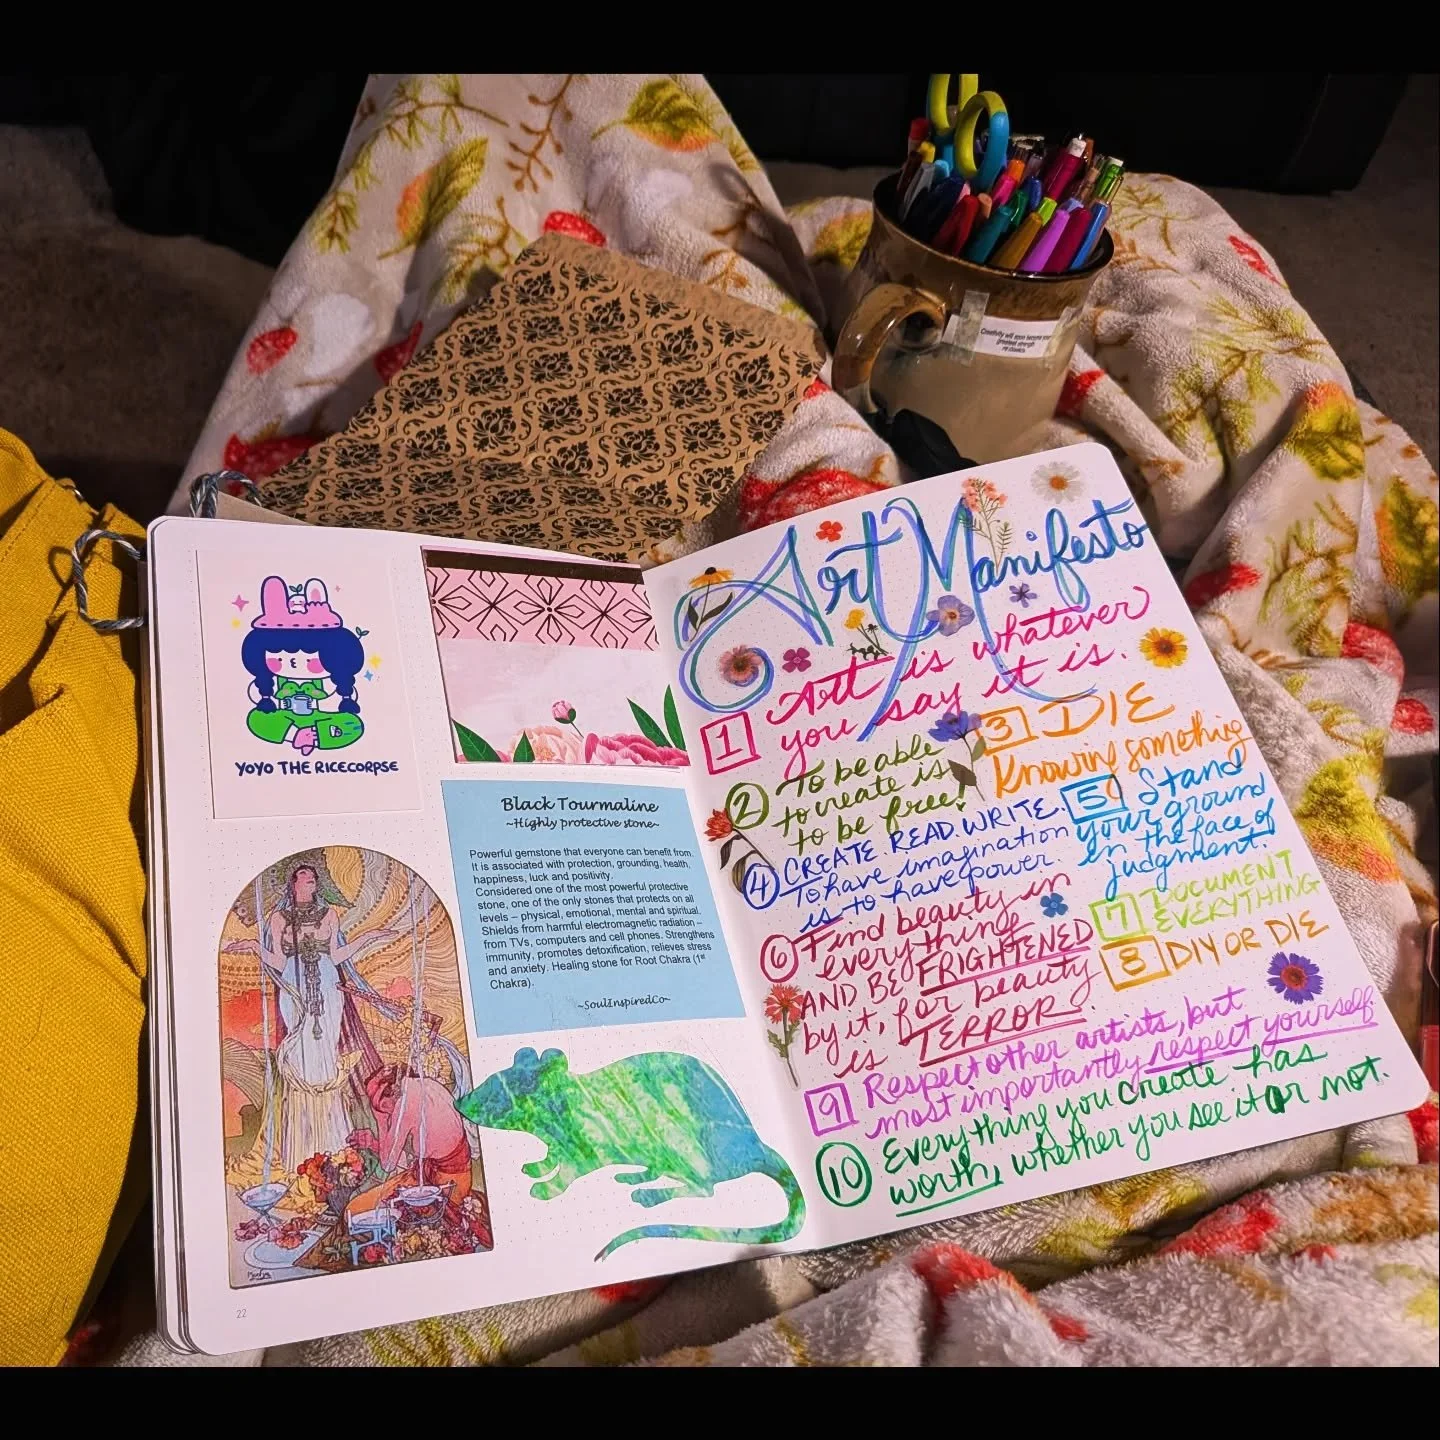 Creativity will soon become your
greatest strength
YOYO THE RICECORPSE
Black Tourmaline
~Highly protective stone~
Powerful gemstone that everyone can benefit from.
It is associated with protection, grounding, health,
happiness, luck and positivity.
Considered one of the most powerful protective
stone, one of the only stones that protects on all
levels – physical, emotional, mental and spiritual.
Shields from harmful electromagnetic radiation –
from TVs, computers and cell phones. Strengthens
immunity, promotes detoxification, relieves stress
and anxiety. Healing stone for Root Chakra (1st
Chakra).
~SoulInspiredCo~
22
Art Manifesto
1 Art is whatever
you say it is.
2 To be able
to create is
to be free!
3 DIE
Knowing something
4 CREATE. READ. WRITE.
To have imagination
is to have power.
5 Stand
your ground
in the face of
judgment.
6 Find beauty in
everything
AND BE FRIGHTENED
by it, for beauty
is TERROR.
7 DOCUMENT
EVERYTHING
8 DIY OR DIE
9 Respect other artists, but
most importantly respect yourself.
10 Everything you create has
worth, whether you see it or not.